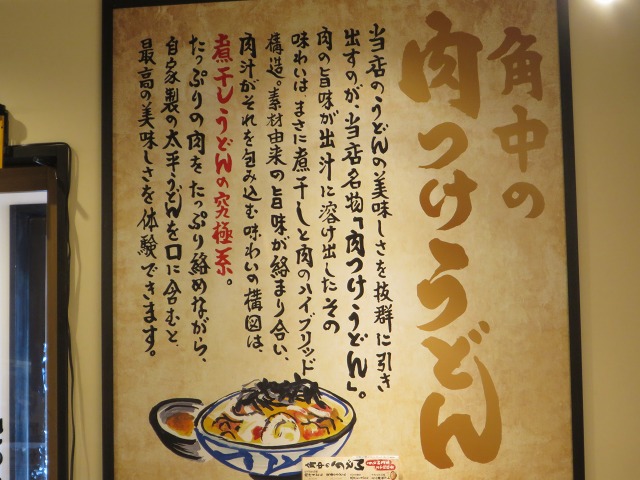 角中の
肉つけうどん
当店のうどんの美味しさを抜群に引き
出すのが、当店名物「肉つけうどん」。
肉の旨味が出汁に溶け出したその
味わいは、まさに煮干しと肉のハイブリッド
構造。素材由来の旨味が絡まり合い、
肉汁がそれを包み込む味わいの構図は、
煮干しうどんの究極系。
たっぷりの肉をたっぷり絡めながら、
自家製の太平うどんを口に含むと、
最高の美味しさを体験できます。